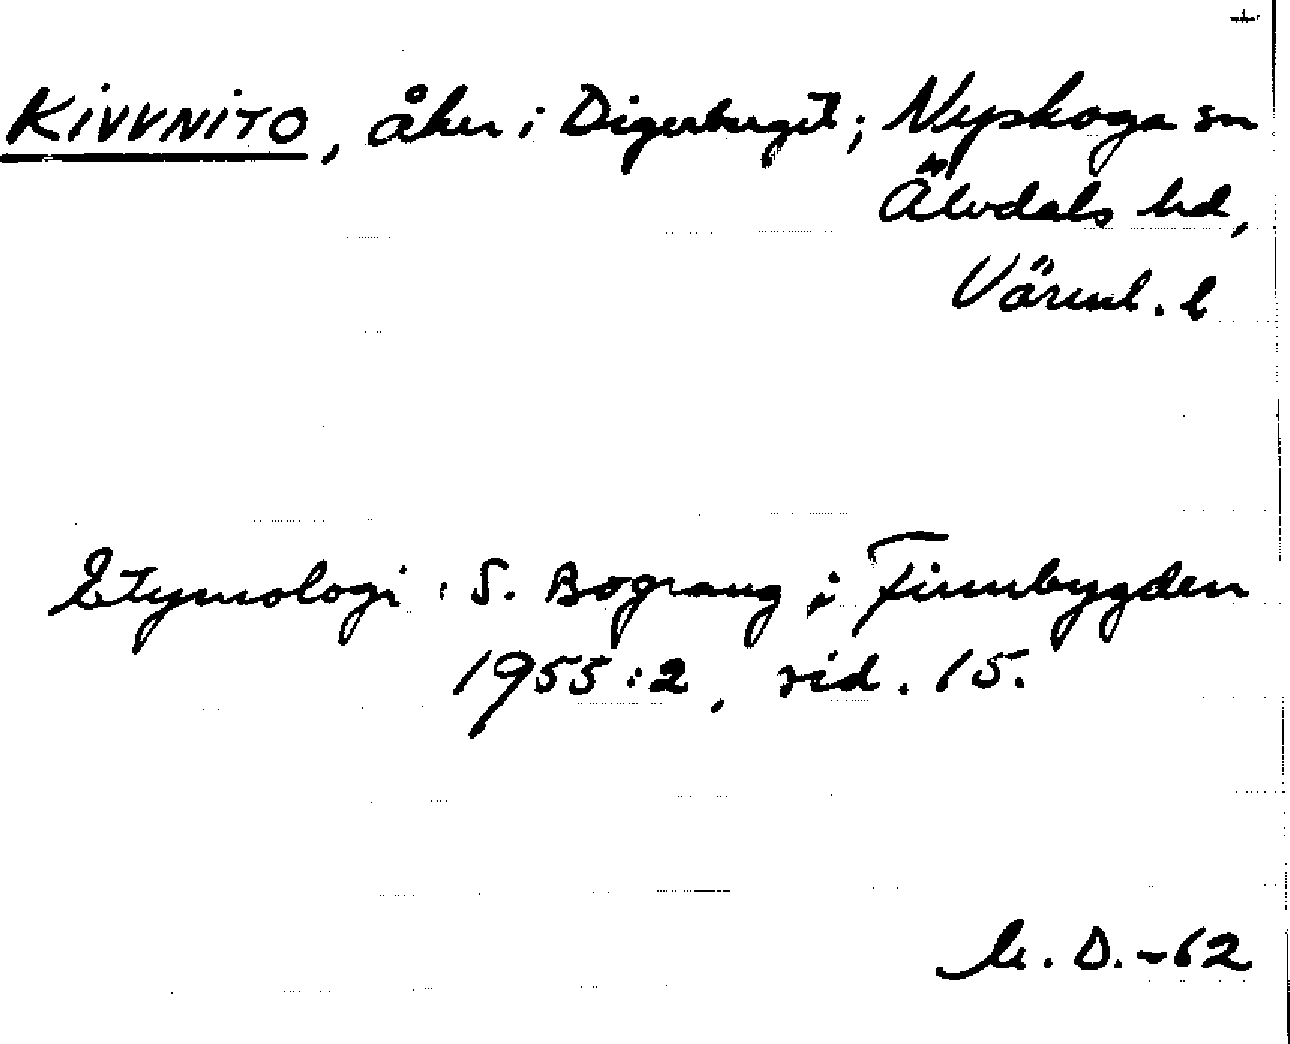 KIVVNITO, åker i Digerberget; Nyskoga sn
Älvdals hd,
Värml. l
Etymologi: S. Bograng i Finnbygden
1955:2, sid. 15.
D. -62